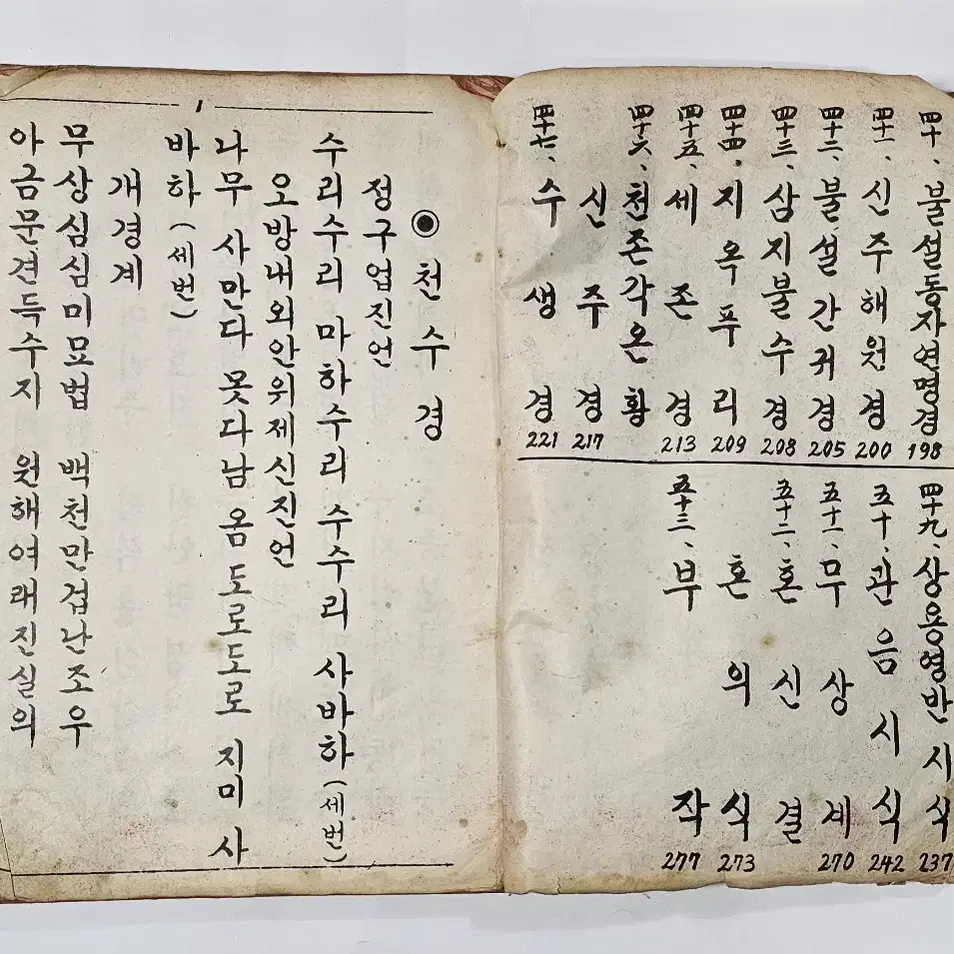 四十、불설동자연명경 198
四十一、신주해원경 200
四十二、불설간귀경 205
四十三、삼지불수경 208
四十四、지옥푸리 209
四十五、세존경 213
四十六、천존각온황
신주경 217
四十七、수생경 221
四十九、상용영반시식 237
五十、관음시식 242
五十一、무상계 270
五十二、혼신결
혼의식 273
五十三、부작 277
1
◉천수경
정구업진언
수리수리 마하수리 수수리 사바하(세번)
오방내외안위제신진언
나무 사만다 못다남 옴 도로도로 지미 사
바하(세번)
개경계
무상심심미묘법 백천만겁난조우
아금문견득수지 원해여래진실의